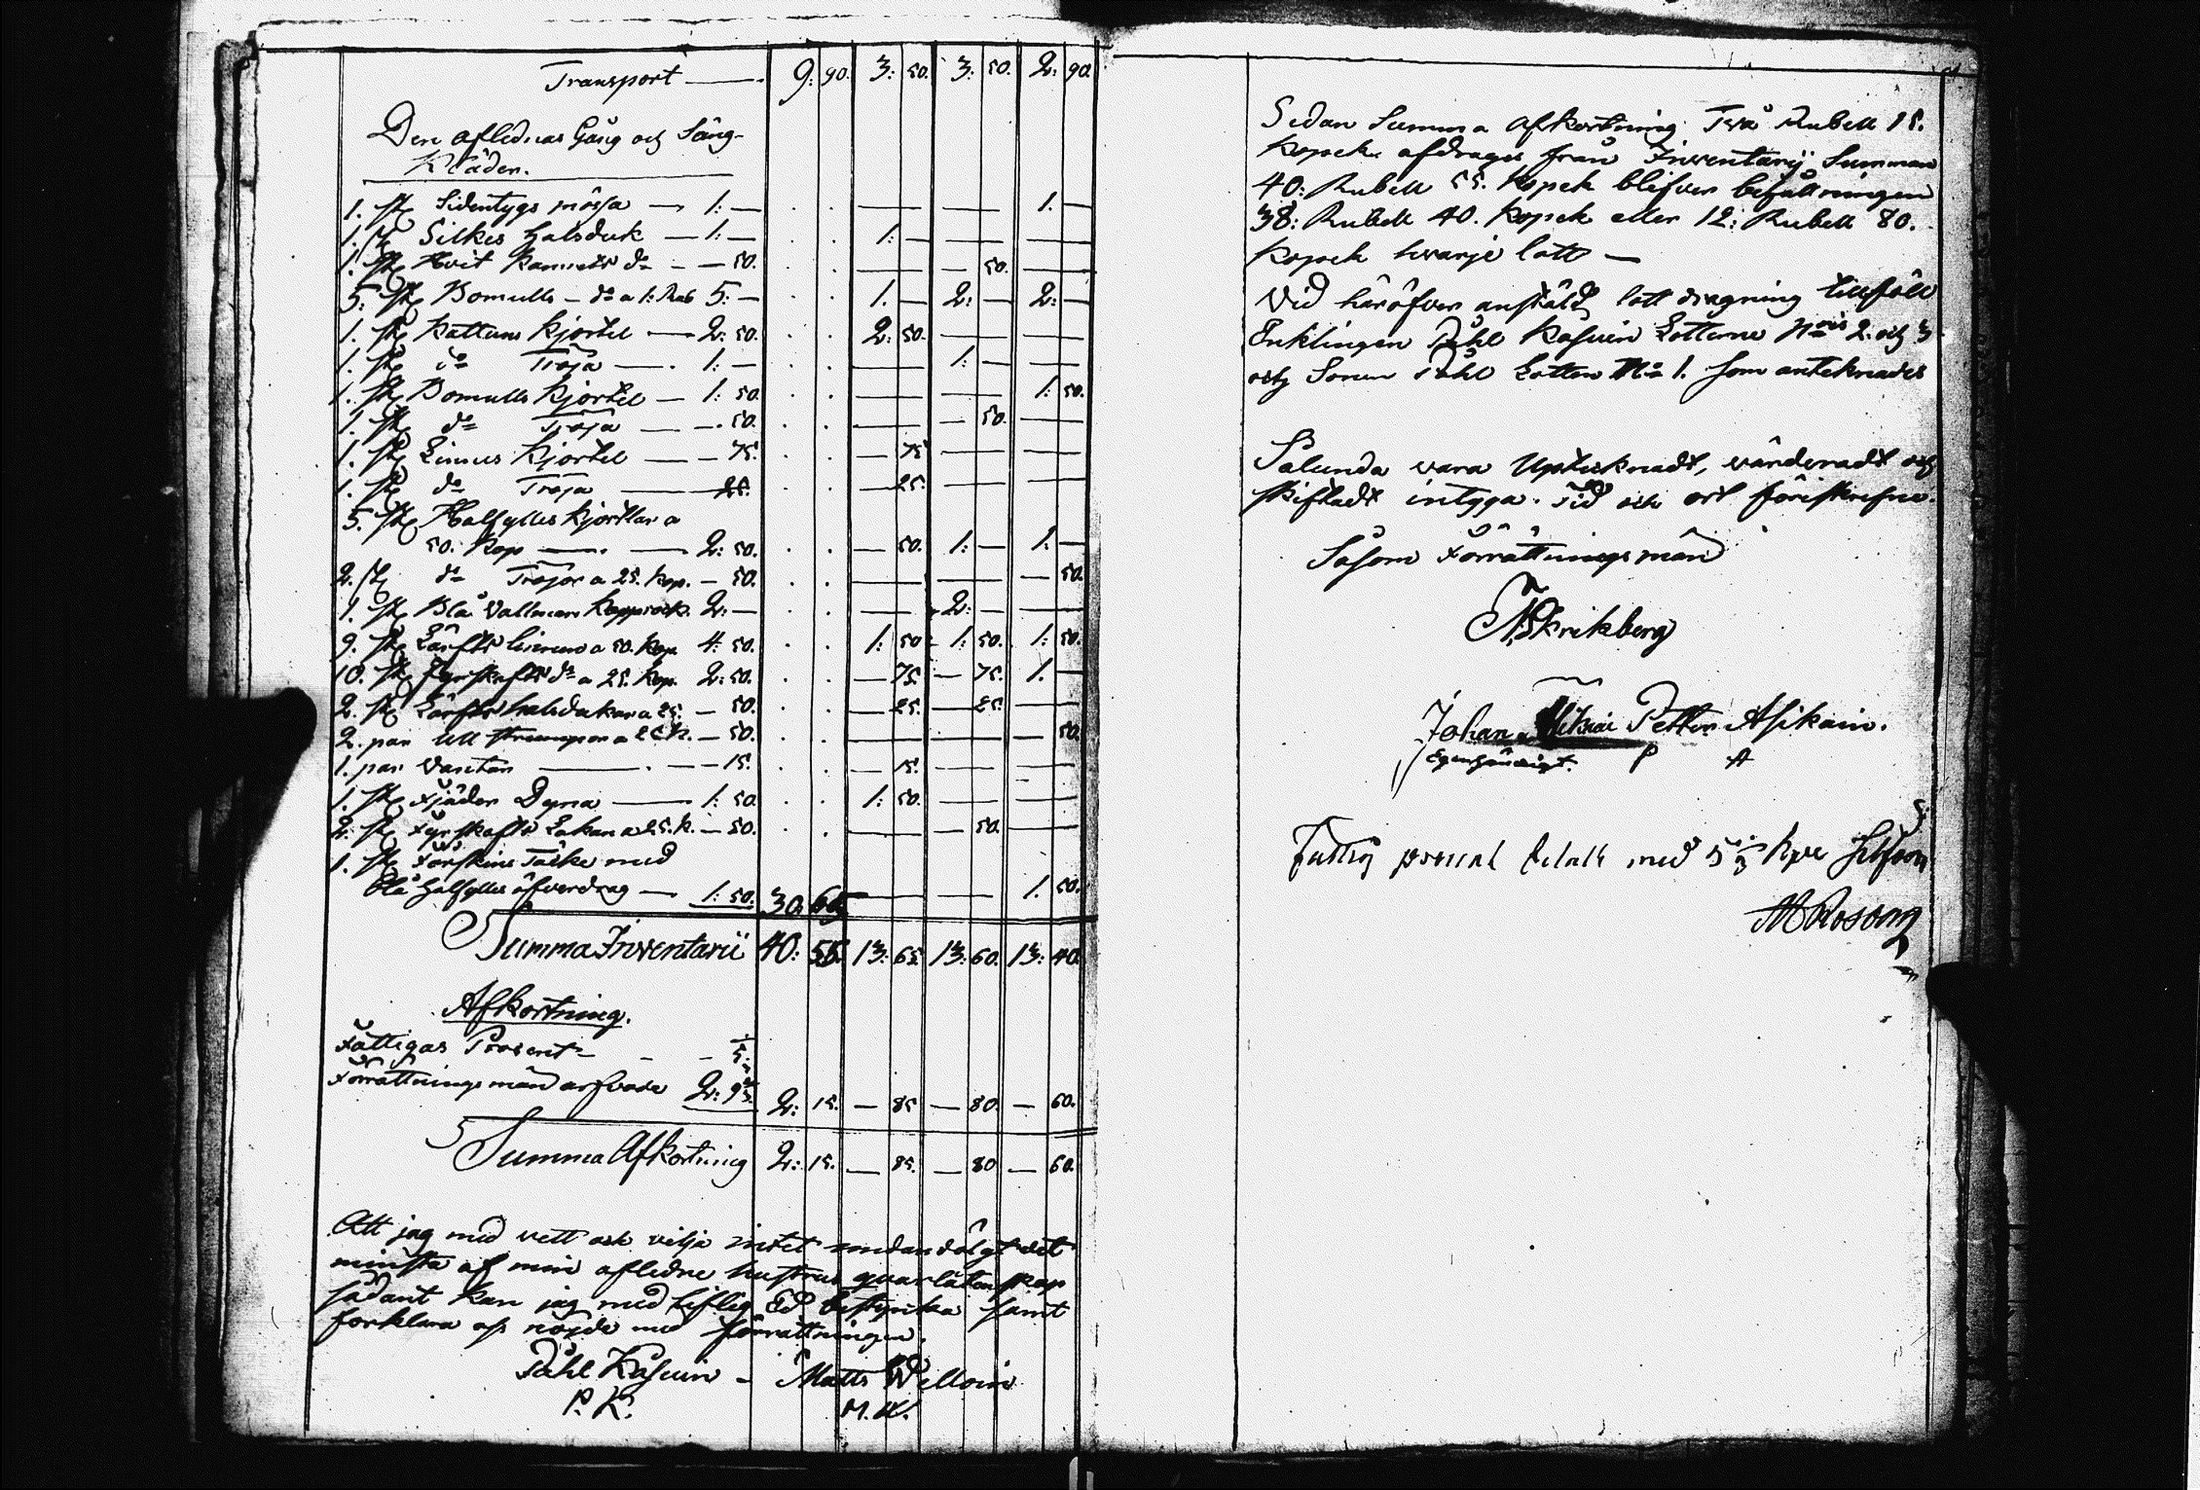 Transport — 9: 90. 3: 50. 3: 50. 2: 90.
Den aflednas Gång och Säng-
Kläder.
1. st Sidentygs mössa — 1: — . . — — — — 1. —
1. st Silkes halsduk — 1: — . . 1: — — — — —
1. st Hvit Kamuets do — — 50. . . — — — 50. — —
5: st Bomulls — do a 1: Rub 5: — . . 1. — 2: — 2: —
1. st Kattuns Kjortel — 2: 50. . . 2: 50. — — — —
1. st do Tröja — . 1: — . . — — 1: — — —
1. st Bomulls Kjortel — 1: 50. . . — — — — 1: 50.
1. st do Tröja — — . 50. . . — — — 50. — —
1. st Linnes Kjortel — — 75. . . — 75 — — — —
1. st do Tröja — 25. . . — 25. — — — —
5. st Halfylles Kjortlar a
50. Kop — . — 2: 50. . . — 50. 1: — 1: —
2. st do Tröjor a 25. Kop. — 50. . . — — — — — 50.
1. st Blå Vallmars Kapprock. 2: — . . — — 2: — — —
9. st Lärfts linnen a 50. Kop 4: 50. . . 1: 50 1: 50. 1: 50.
10. st Fyrskafts do a 25. Kop. 2: 50. . . — 75. — 75. 1. —
2. st Lärfts halsdukar a 25. — 50. . . — 25. — 25. — —
2. par Ull strumpor a 25 k. — 50. . . — — — — — 50.
1. par Vantar — . — — 15. . . — 15. — — — —
1. st Fjäder Dyna — 1: 50. . . 1: 50. — — — —
2: st Fyrskafts Lakan a 25. k. — 50. . . — — — 50. — —
1. st Fårskins Täcke med
Blå Halfylles öfverdrag — 1: 50. 30. 65 — — — — 1. 50.
Summa Inventarii 40: 55. 13: 65. 13: 60. 13: 40
Afkortning.
Fattigas Procent — — 5:
Förrättningsmäns arfvode 2: 9 2: 15. — 85 — 80. — 60.
Summa Afkortning 2: 15. — 85. — 80 — 60.
Att jag med vett och vilja intet undandölgt det
minsta af min aflidne hustrus quarlåtenskap
sådant kan jag med liflig Ed bestyrka samt
forklara oss nöjde med förrättningen.
Påhl Kasuin — Matts Welloin
P. K. M. W.
Sedan Summa afkortning Två Rubell 15.
Kopek. afdrages från Inventarii Summan
40: Rubell 55. Kopek blifver befattningen
38: Rubell 40. Kopek eller 12: Rubell 80.
Kopek hvarje lott —
Vid häröfver anstäld lott dragning tillföll
Enklingen Påhl Kasuin Lotterne Nris 2. och 3
och Sonen Påhl Lotten No 1. som antecknades
Sålunda vara Upteknadt, värderadt och
skiftadt intyga. Tid och ort föreskrefne.
Såsom Förrättningsmän
Skrikberg
Johan Petter Asikain.
Egenhändigt. P A
Fattig procent betalt med 5 1/3 kpk